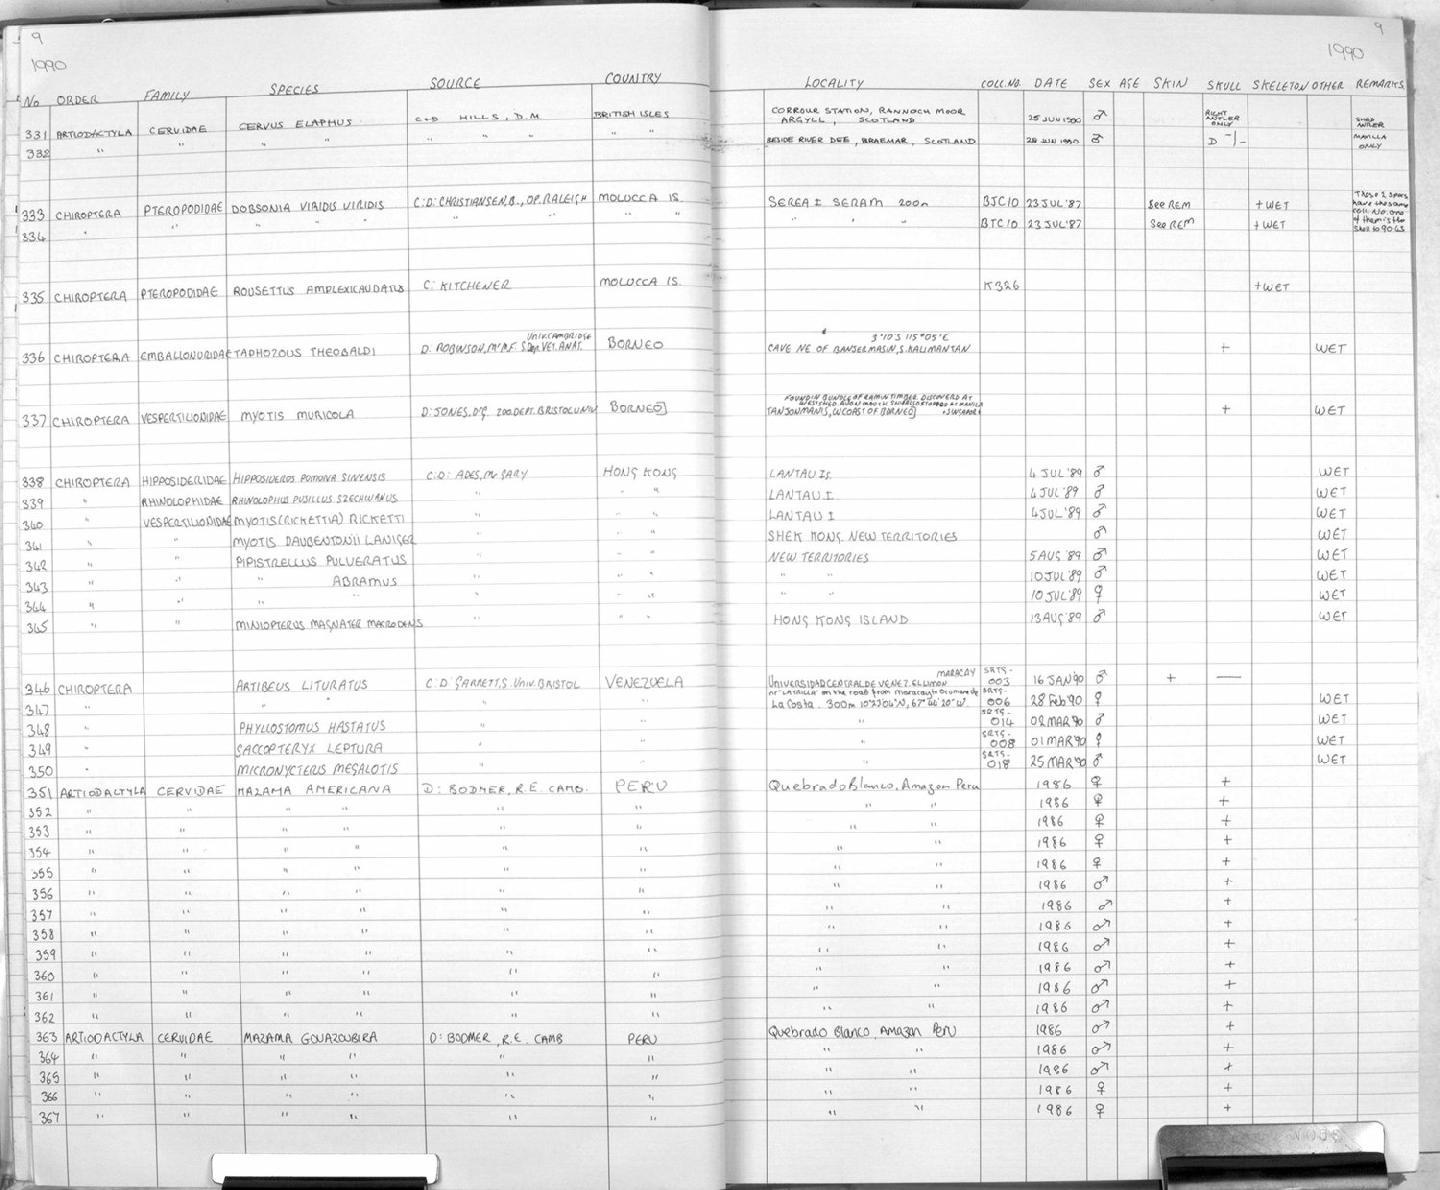 9 9
1990 1990
No ORDER FAMILY SPECIES SOURCE COUNTRY LOCALITY COLL.NO. DATE SEX AGE SKIN SKULL SKELETON OTHER REMARKS
331 ARTIODACTYLA CERVIDAE CERVUS ELAPHUS C+D HILLS, D.M BRITISH ISLES CORROUR STATION, RANNOCH MOOR ARGYLL, SCOTLAND 25 JUN 1990 ♂ RIGHT ANTLER ONLY SHED ANTLER
332 " " " " " " " BESIDE RIVER DEE, BRAEMAR, SCOTLAND 28 JUN 1990 ♂ D -/- MAXILLA ONLY
333 CHIROPTERA PTEROPODIDAE DOBSONIA VIRIDIS VIRIDIS C:D: CHRISTIANSEN,B., OP.RALEIGH MOLUCCA IS. SEREA I SERAM 200m BJC10 23 JUL '87 See REM + WET These 2 spms have the same coll. No. one of them is the
334 " " " " " " " " " BTC10 23 JUL '87 See REM + WET
335 CHIROPTERA PTEROPODIDAE ROUSETTUS AMPLEXICAUDATUS C: KITCHENER MOLUCCA IS. K326 + WET
336 CHIROPTERA EMBALLONURIDAE TAPHOZOUS THEOBALDI D. ROBINSON, M.F. UNIV.CAMBRIDGE VET. ANAT. BORNEO 3°10'S 115°05'E CAVE NE OF BANJELMASIN, S.KALIMANTAN + WET
337 CHIROPTERA VESPERTILIONIDAE MYOTIS MURICOLA D: JONES, D.G. ZOO.DEPT.BRISTOL UNIV BORNEO] FOUND IN BUNDLE OF RAMIN TIMBER DISCOVERED AT TANJONMANIS, W COAST OF BORNEO] + WET
338 CHIROPTERA HIPPOSIDERIDAE HIPPOSIDEROS POMONA SINENSIS C:D: ADES, Mr GARY HONG KONG LANTAU IS. 4 JUL '89 ♂ WET
339 " RHINOLOPHIDAE RHINOLOPHUS PUSILLUS SZECHWANUS " " " LANTAU I 4 JUL '89 ♂ WET
340 " VESPERTILIONIDAE MYOTIS (RICKETTIA) RICKETTI " " " LANTAU I 4 JUL '89 ♂ WET
341 " " MYOTIS DAUBENTONII LANIGER " " " SHEK KONG NEW TERRITORIES ♂ WET
342 " " PIPISTRELLUS PULVERATUS " " " NEW TERRITORIES 5 AUG '89 ♂ WET
343 " " " ABRAMUS " " " " " 10 JUL '89 ♂ WET
344 " " " " " " " " " 10 JUL '89 ♀ WET
345 " " MINIOPTERUS MAGNATER MACRODENS " " " HONG KONG ISLAND 13 AUG '89 ♂ WET
346 CHIROPTERA ARTIBEUS LITURATUS C:D: GARRETT, S. UNIV. BRISTOL VENEZUELA UNIVERSIDAD CENTRAL DE VENEZ. EL LIMON MARACAY SRTG-003 16 JAN 90 ♂ + —
347 " " " " " on the road from Maracay to Ocumare de La Costa. 300m 10°23'04"N, 67°46'20"W. SRTG-006 28 Feb '90 ♀ WET
348 " PHYLLOSTOMUS HASTATUS " " " SRTG-014 02 MAR 90 ♂ WET
349 " SACCOPTERYX LEPTURA " " " SRTG-008 01 MAR '90 ♀ WET
350 " MICRONYCTERIS MEGALOTIS " " " SRTG-018 25 MAR '90 ♂ WET
351 ARTIODACTYLA CERVIDAE MAZAMA AMERICANA D: BODMER, R.E. CAMB. PERU Quebrado Blanco, Amazon Peru 1986 ♀ +
352 " " " " " " " " 1986 ♀ +
353 " " " " " " " " 1986 ♀ +
354 " " " " " " " " 1986 ♀ +
355 " " " " " " " " 1986 ♀ +
356 " " " " " " " " 1986 ♂ +
357 " " " " " " " " 1986 ♂ +
358 " " " " " " " " 1986 ♂ +
359 " " " " " " " " 1986 ♂ +
360 " " " " " " " " 1986 ♂ +
361 " " " " " " " " 1986 ♂ +
362 " " " " " " " " 1986 ♂ +
363 ARTIODACTYLA CERVIDAE MAZAMA GOUAZOUBIRA D: BODMER, R.E. CAMB PERU Quebrado Blanco, Amazon Peru 1986 ♂ +
364 " " " " " " " " 1986 ♂ +
365 " " " " " " " " 1986 ♂ +
366 " " " " " " " " 1986 ♀ +
367 " " " " " " " " 1986 ♀ +